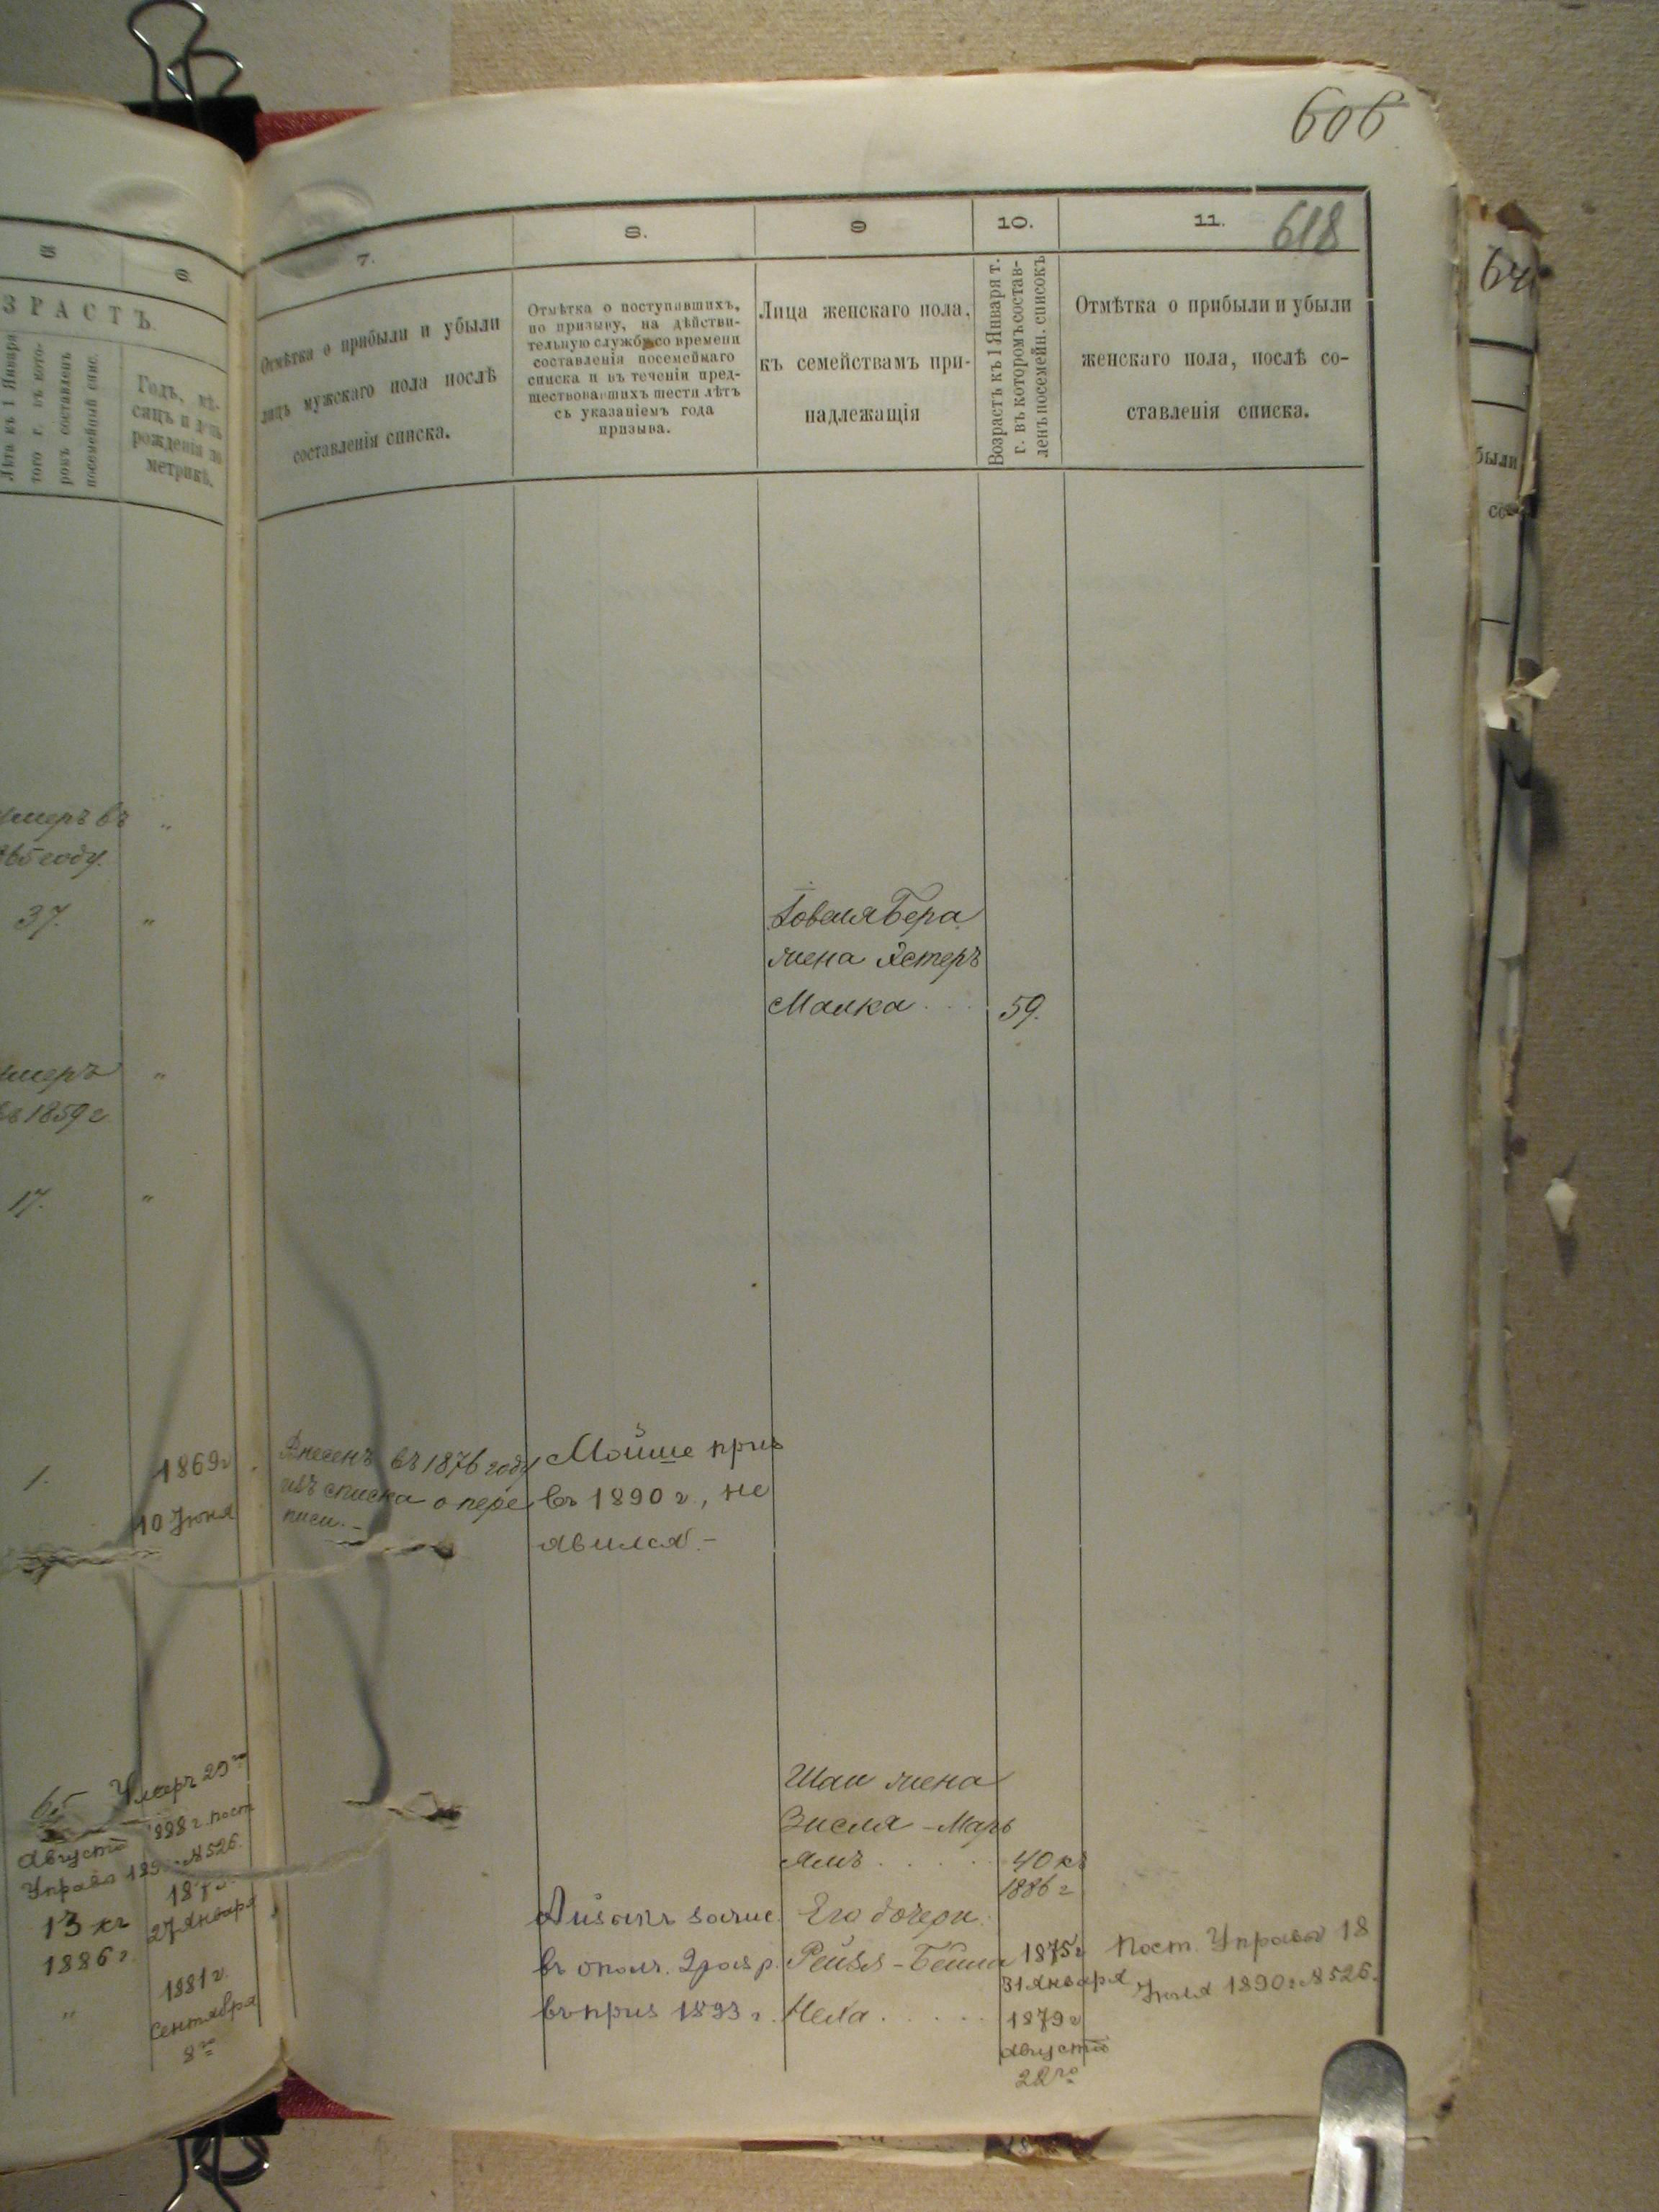 606
618
5
6
7.
8.
9
10.
11.
ЗРАСТЪ.
Лѣта къ 1 Января
того г. въ кото-
ромъ составленъ
посемейный спис.
Годъ, мѣ-
сяцъ и день
рожденія по
метрикѣ.
Отмѣтка о прибыли и убыли
лицъ мужскаго пола послѣ
составленія списка.
Отмѣтка о поступившихъ,
по призыву, на дѣйстви-
тельную службу со времени
составленія посемейнаго
списка и въ теченіи пред-
шествовавшихъ шести лѣтъ
съ указаніемъ года
призыва.
Лица женскаго пола,
къ семействамъ при-
надлежащія
Возрастъ къ 1 Января т.
г. въ которомъ состав-
ленъ посемейн. списокъ
Отмѣтка о прибыли и убыли
женскаго пола, послѣ со-
ставленія списка.
были
умеръ въ "
865 году.
37. "
Бера
жена Эстеръ
Малка . . . 59.
умеръ "
въ 1859 г
17. "
1. 1869 г
10 Юня
Внесенъ въ 1876 году
изъ списка о пере
писи. –
Мойше приз
въ 1890 г., не
явился. –
65 Умеръ 29го
Августа 1888 г. пост
Управы № 526.
13 къ
1886 г.
27 Января
"
1881 г.
Сентября
8го
Шаи жена
Зисля - Марь
ямъ . . . . 40 къ
1886 г
Айзикъ зачис.
въ ополч. 2 разр.
въ приз 1893 г.
Его дочери:
Рейзя - Бейла 1875 г
31 Января
Неха . . . . . 1879 г
Августа
22го
Пост. Управы 18
Юля 1890 г № 526.